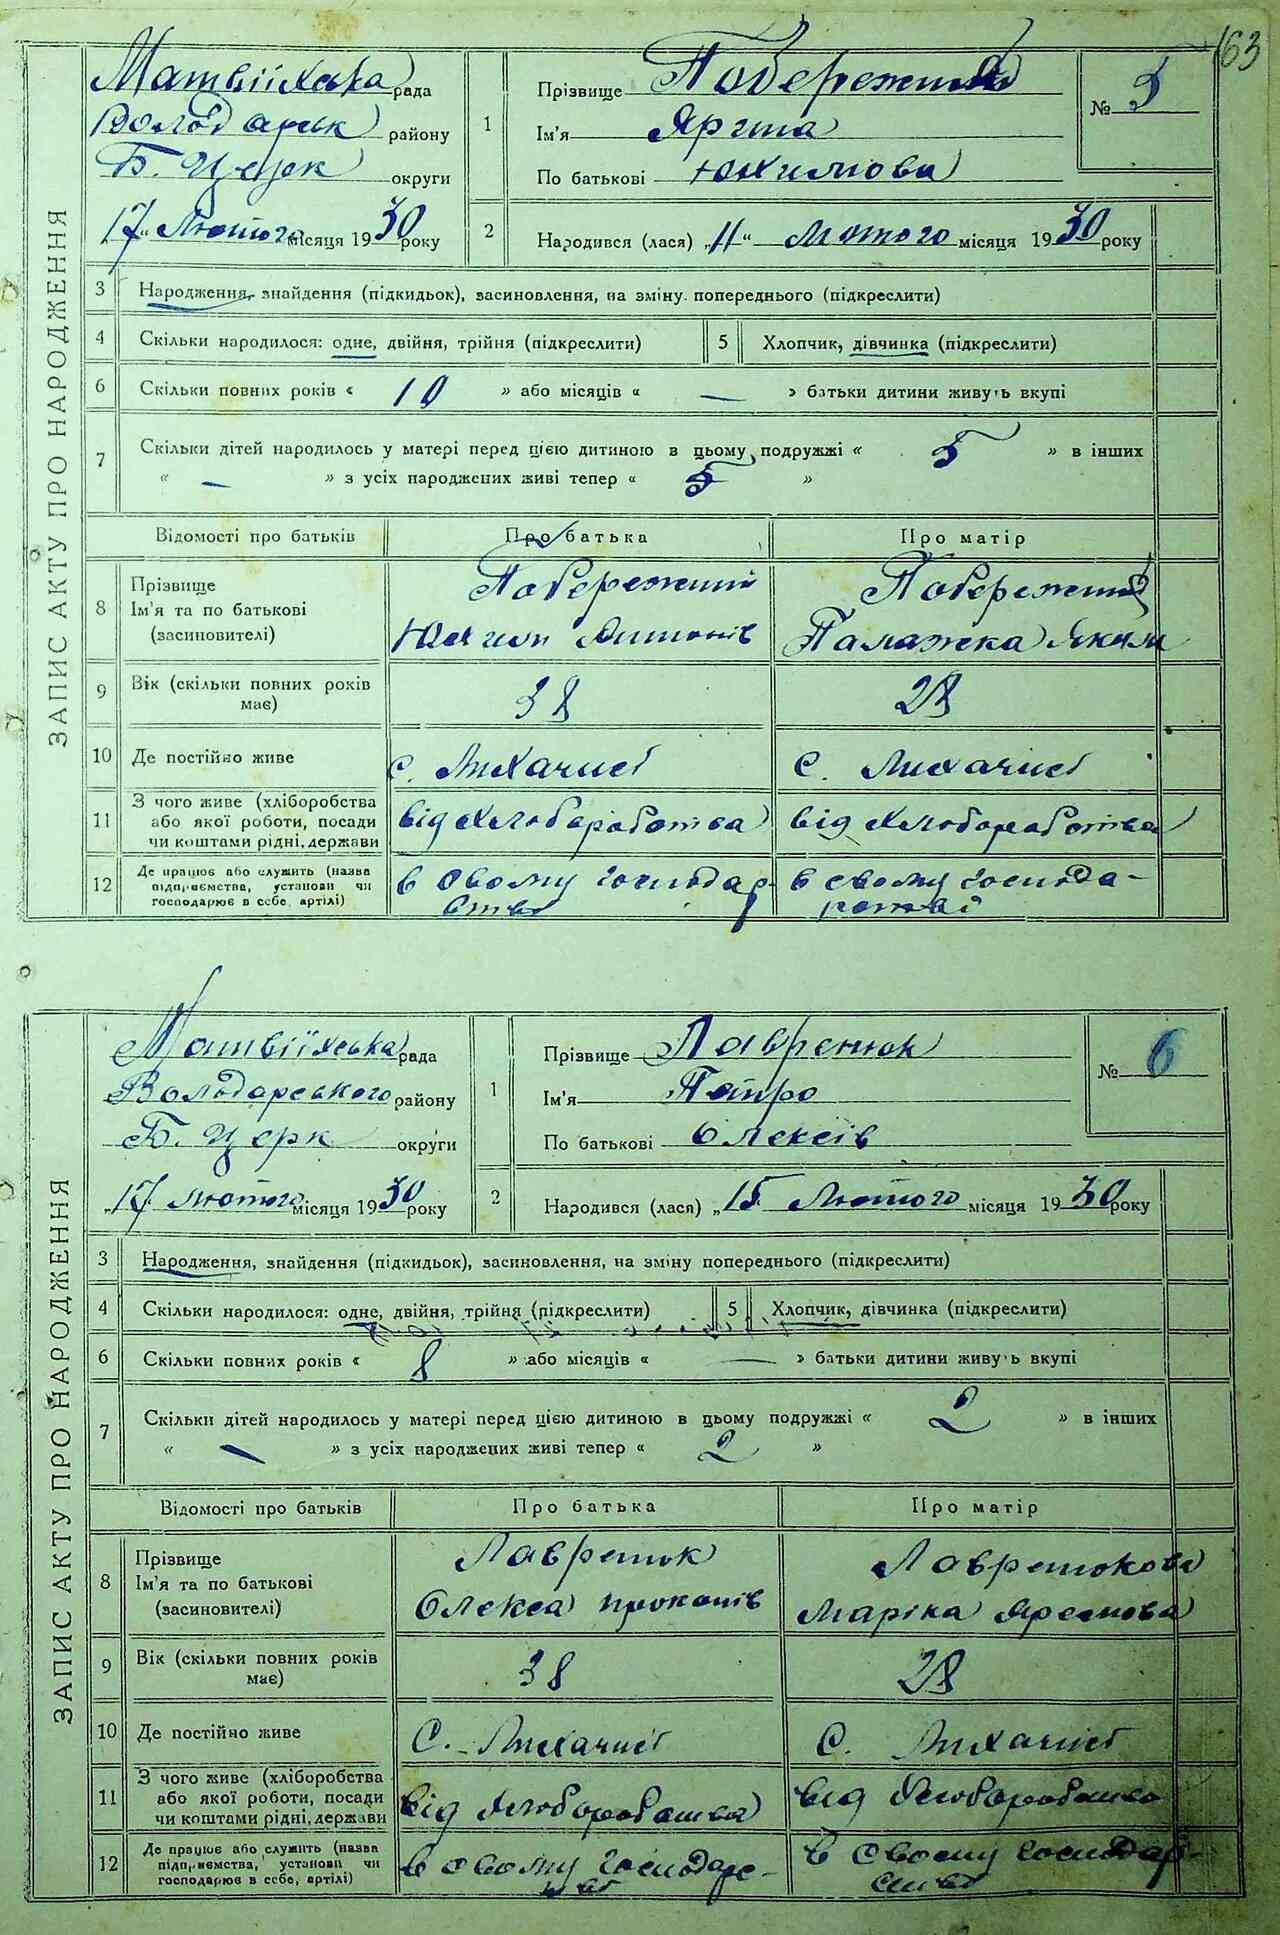 163
ЗАПИС АКТУ ПРО НАРОДЖЕННЯ
Матвіїхська рада
Володарськ району
Б. Церк округи
„17“ Лютого місяця 1930 року
1
Прізвище Побережна
Ім'я Ярина
По батькові Юхимова
№ 5
2 Народився (лася) „11“ лютого місяця 1930 року
3 Народження, знайдення (підкидьок), засиновлення, на зміну попереднього (підкреслити)
4 Скільки народилося: одне, двійня, трійня (підкреслити) 5 Хлопчик, дівчинка (підкреслити)
6 Скільки повних років « 10 » або місяців « — » батьки дитини живуть вкупі
7 Скільки дітей народилось у матері перед цією дитиною в цьому подружжі « 5 » в інших
« — » з усіх народжених живі тепер « 5 »
Відомості про батьків Про батька Про матір
8 Прізвище Ім'я та по батькові (засиновителі)
Побережний Побережна
Юхим Антонів Палажка Яким
9 Вік (скільки повних років має) 38 28
10 Де постійно живе с. Лихачисі с. Лихачисі
11 З чого живе (хліборобства або якої роботи, посади чи коштами рідні, держави
від хлюборобства від хлюборобства
12 Де працює або служить (назва підприємства, установи чи господарює в себе, артілі)
в свому господар- в свому господа-
ЗАПИС АКТУ ПРО НАРОДЖЕННЯ
Матвіїхська рада
Володарського району
Б. Церк округи
„17 лютого місяця 1930 року
1
Прізвище Лавренюк
Ім'я Петро
По батькові Олексів
№ 6
2 Народився (лася) „15 Лютого місяця 1930 року
3 Народження, знайдення (підкидьок), засиновлення, на зміну попереднього (підкреслити)
4 Скільки народилося: одне, двійня, трійня (підкреслити) 5 Хлопчик, дівчинка (підкреслити)
6 Скільки повних років « 8 » або місяців « — » батьки дитини живуть вкупі
7 Скільки дітей народилось у матері перед цією дитиною в цьому подружжі « 2 » в інших
« — » з усіх народжених живі тепер « 2 »
Відомості про батьків Про батька Про матір
8 Прізвище Ім'я та по батькові (засиновителі)
Лавренюк Лавренюкова
Олекса Прокопів Маріка Яремова
9 Вік (скільки повних років має) 38 28
10 Де постійно живе С. Лихачисі С. Лихачисі
11 З чого живе (хліборобства або якої роботи, посади чи коштами рідні, держави
від хлюборобства від хлюборобства
12 Де працює або служить (назва підприємства, установи чи господарює в себе, артілі)
в свому господарс- в свому господар-